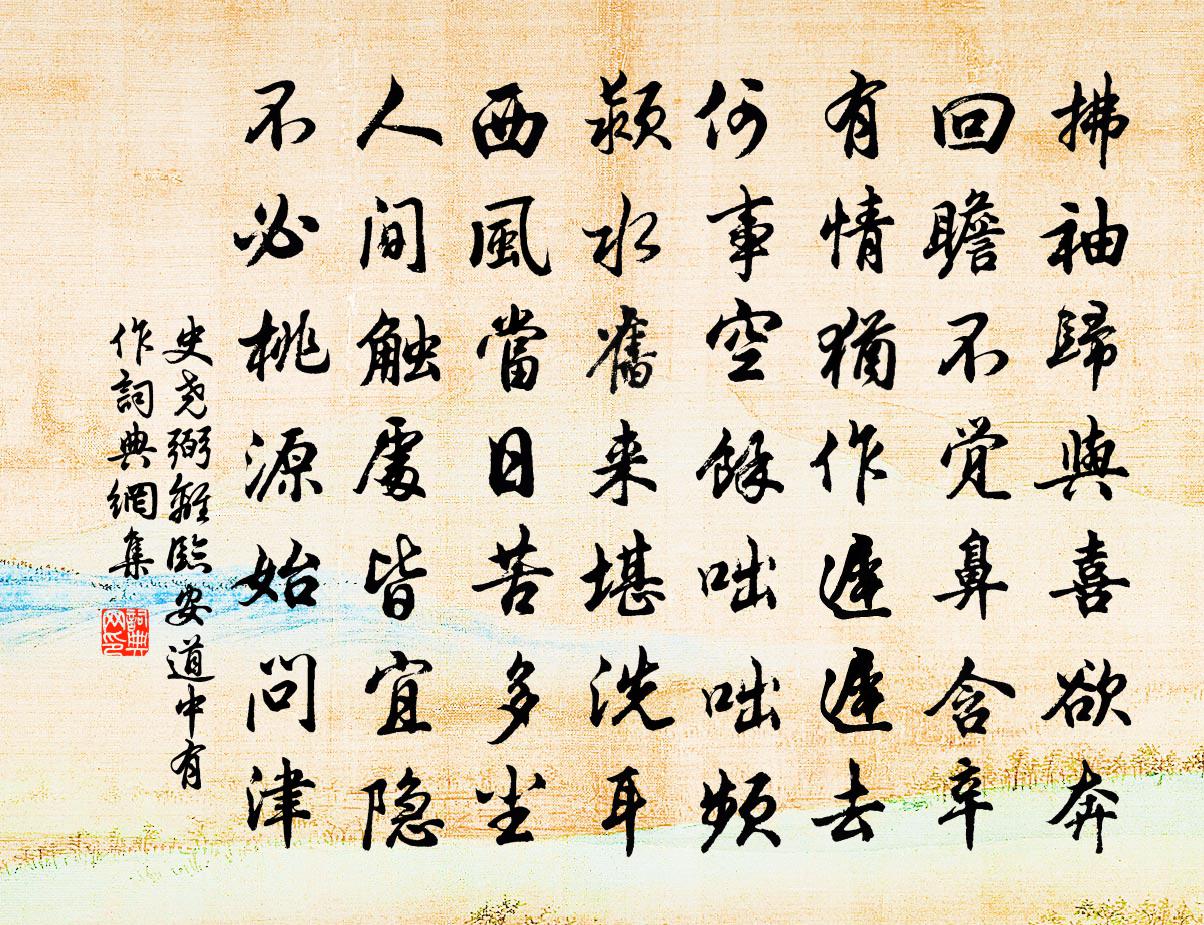 拂袖歸與喜欲奔
回瞻不觉鼻含辛
有情猶作遲遲去
何事空餘咄咄頻
颍水舊来堪洗耳
西風當日苦多尘
人间触處皆宜隐
不必桃源始问津
史尧弼離臨安道中有
作詞典網集
詞典網印